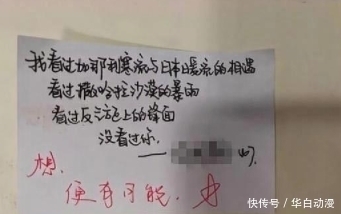 我看过加那利寒流与日本暖流的相遇
看过撒哈拉沙漠的暴雨
看过反方向上的锋面
没看过你.
——
想.
便有可能.
快传号/华白动漫